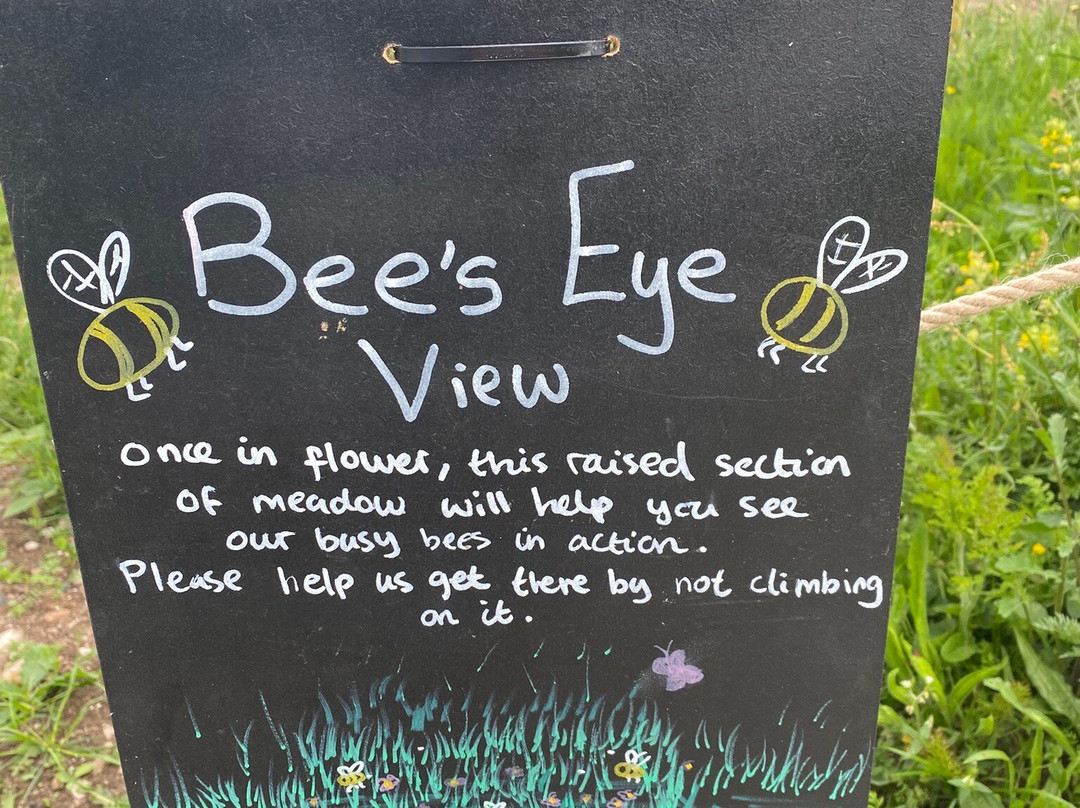 Bee's Eye
View
Once in flower, this raised section
of meadow will help you see
our busy bees in action.
Please help us get there by not climbing
on it.